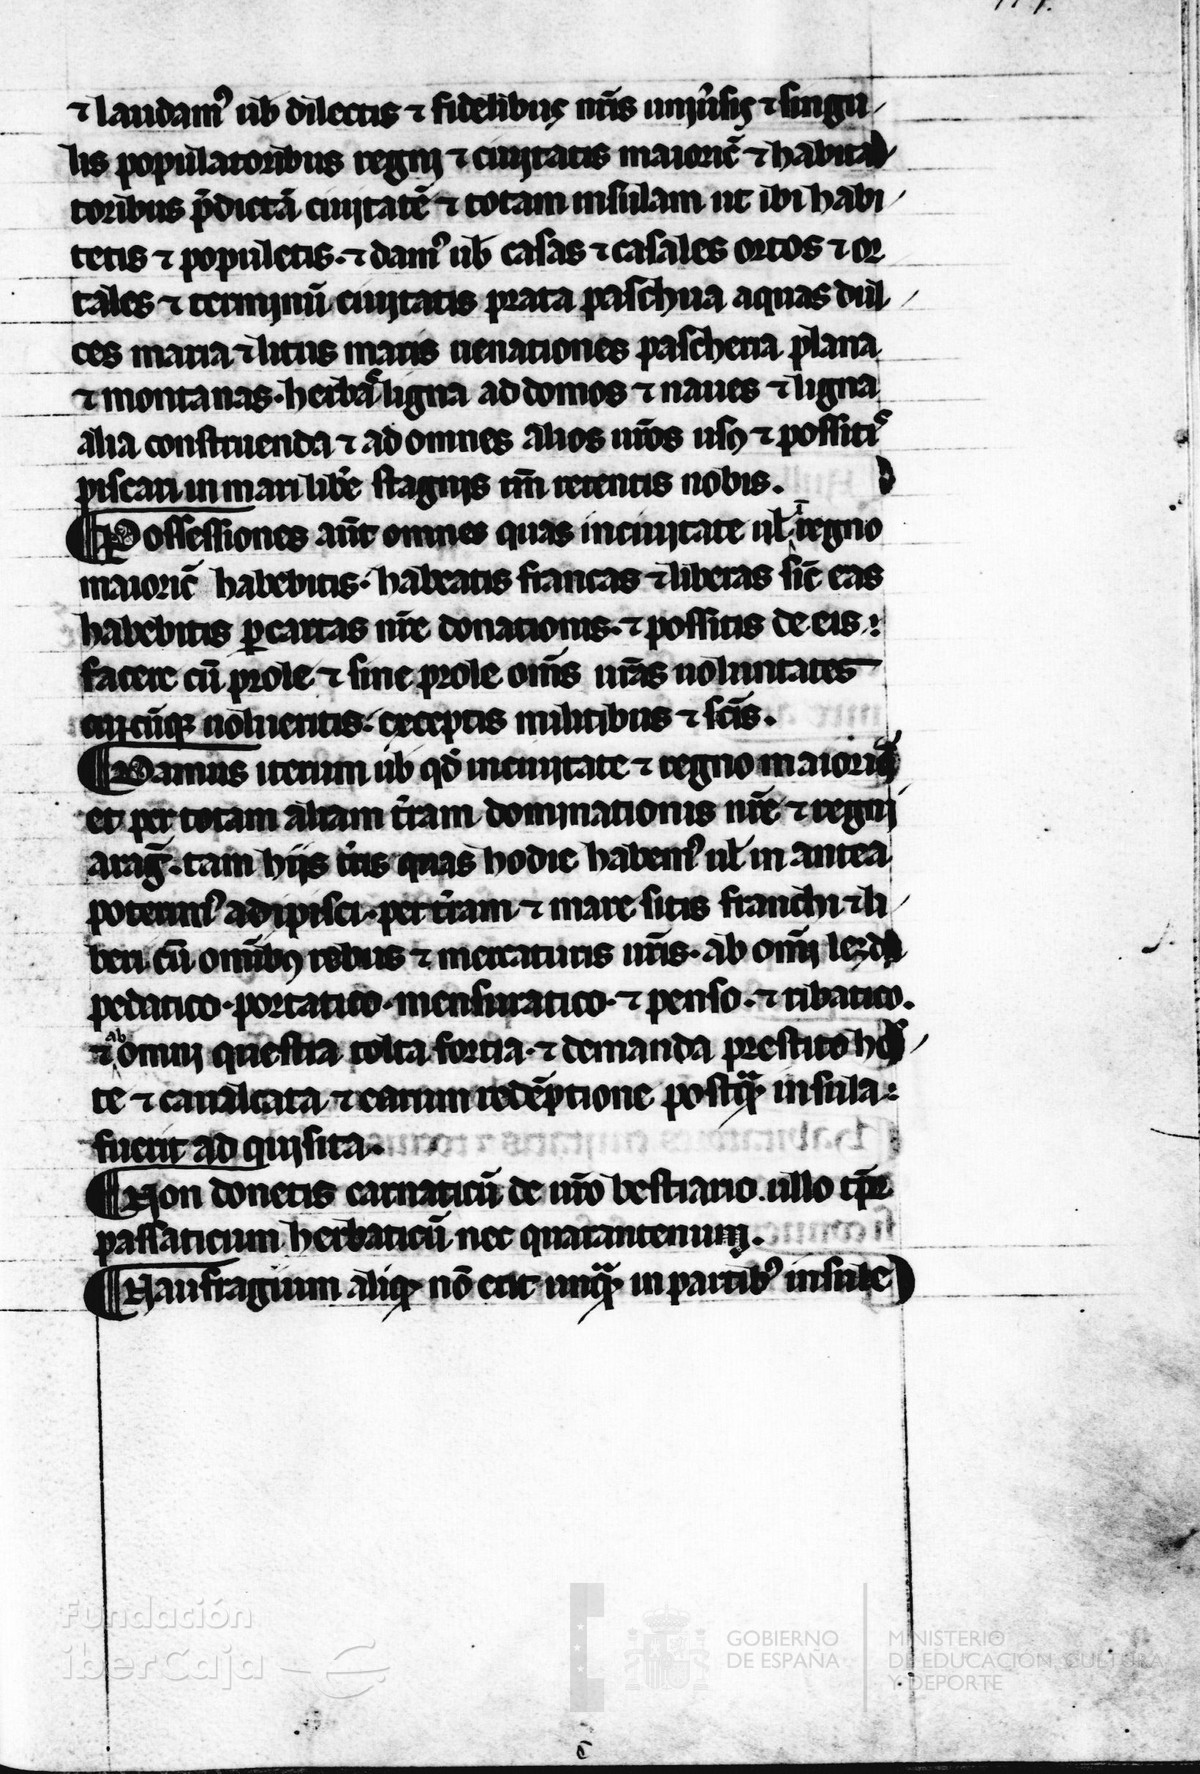 ⁊ laudam᷒ uob dilectis ⁊ fidelibus nr̃is uniũsis ⁊ singu
lis populatoribus regnj ⁊ ciujtatis maioric̃ ⁊ habita
toribus p̃dictã ciujtatẽ ⁊ totam insulam ut ibi habi
tetis ⁊ populetis. ⁊ dam᷒ uob casas ⁊ casales ortos ⁊ or
tales ⁊ termjnũ ciujtatis prata paschua aquas dul
ces maria ⁊ litus maris uenationes pascheria plana
⁊ montanas. herbas ligna ad domos ⁊ naues ⁊ ligna
alia construenda ⁊ ad omnes alios ur̃os usꝯ ⁊ possitis
piscari in mari lib̃e stagnjs tm̃ retentis nobis.
¶ Possessiones aut̃ omnes quas in ciujtate ul̃ regno
maioric̃ habebitis. habeatis francas ⁊ liberas sic̃ eas
habebitis ꝑ cartas nr̃e donationis. ⁊ possitis de eis:
facere cũ prole ⁊ sine prole om̃s ur̃as uoluntates
cujcũqꝫ uolueritis. exceptis militibus ⁊ sc̃is.
¶ Damus iterum uob qd̃ in ciujtate ⁊ regno maioric̃
et per totam aliam tr̃am domjnationis nr̃e ⁊ regnj
arag̃. tam hijs tr̃is quas hodie habem᷒ ul̃ in antea
poterim᷒ adipisci. per tr̃am ⁊ mare sitis franchi ⁊ li
beri cũ om̃ibꝯ rebus ⁊ mercaturis ur̃is. ab om̃j lezda
pedatico. portatico. mensuratico. ⁊ penso. ⁊ ribatico.
⁊ ab omnj questia tolta forcia. ⁊ demanda prestito hos
te ⁊ caualcata ⁊ earum redẽptione postq̃ insula:
fuerit ad qujsita.
¶ Non donetis carnaticũ de ur̃o bestiario ullo tp̃r
passaticum herbaticũ nec quarantenum.
¶ Naufragium aliqꝫ nõ erit unq̃ in partib᷒ insule
Fundación
iberCaja
GOBIERNO
DE ESPAÑA
MINISTERIO
DE EDUCACIÓN, CULTURA
Y DEPORTE